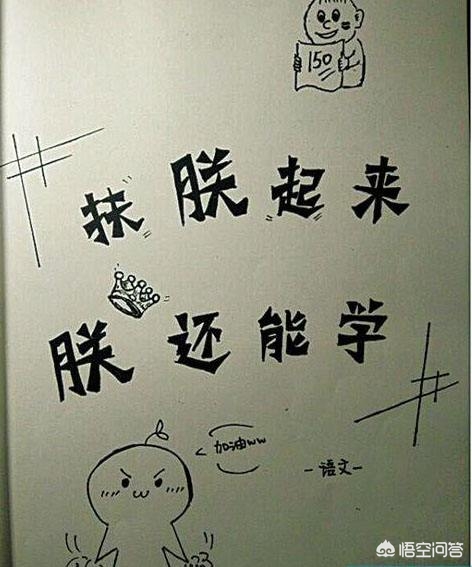 150
扶朕起来
朕还能学
加油ww
-语文-
悟空问答